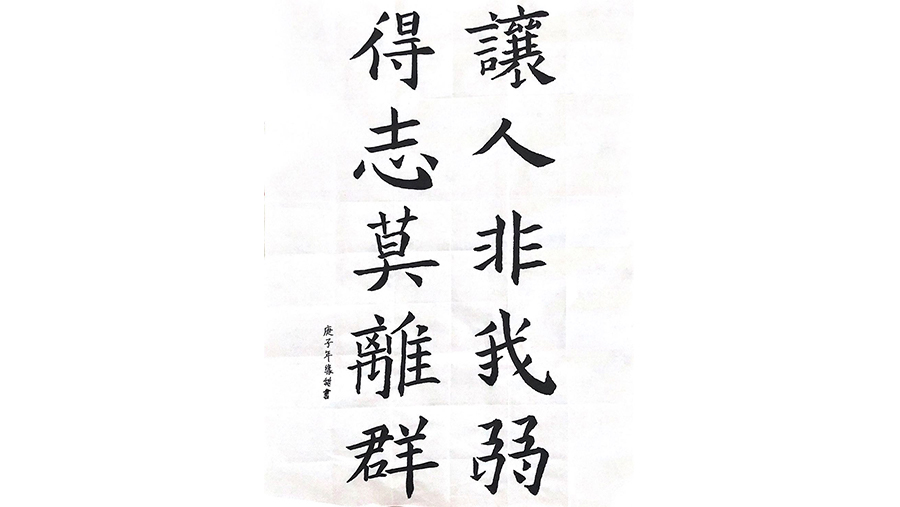 讓人非我弱
得志莫離群
庚子年
書